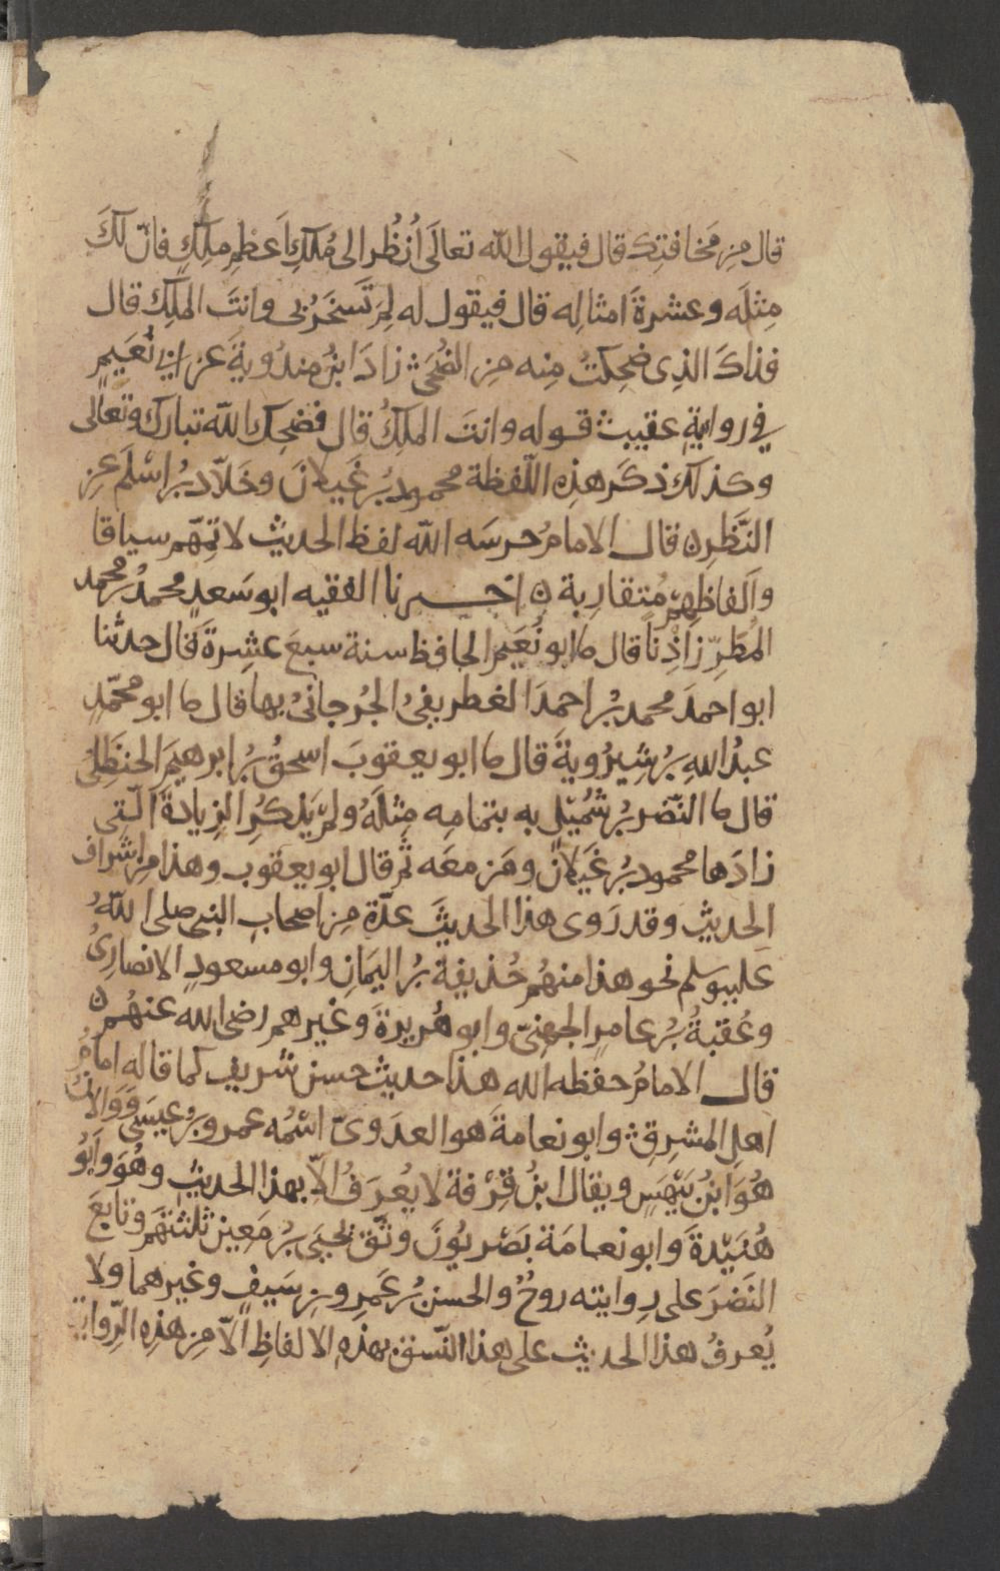 قال مِن مَخافتِك قال فيقول الله تعالَى أُنظُر الى مُلكِ اَعظمِ مَلِكٍ فانّ لَكَ
مِثلَه وعشرةَ امثالِه قال فيقول له لِمَ تَسخَرُ بى وانتَ الملِك قال
فذاكَ الذِى ضحِكتُ مِنه مِن الضُحَى زادَ ابنُ مندُويةَ عن ابى نُعَيمٍ
فى روايةٍ عقيب قوله وانتَ الملِكُ قال فضحِك الله تبارك وتعالى
وكذلك ذكَر هذِه اللّفظة محمود بنُ غَيلانَ وخَلّاد بنُ اسْلَم عن
النَّضرِ ن قال الامامُ حرسَه الله لفظ الحديث لاتمّهم سياقا
والفاظهم مُتقارِبة ن اخبرنا الفقيه ابو سَعدٍ محمدُ بنُ محمد
المُطَرِّز اِذنًا قال ما ابو نُعَيم الحافظ سنة سبعَ عشِرةَ قال حدثنا
ابو احمدَ محمد بنُ احمدَ الغطريفىُ الجُرجانىُ بها قال ما ابو محمّدٍ
عبدُ اللهِ بنُ شِيرُويةَ قال ما ابو يعقوبَ اسحقُ بنُ ابرهيمَ الحنظَلىُ
قال ما النّضر بنُ شُمَيْلٍ به بتمامه مِثلَهُ ولم يَذكُرِ الزِيادةَ الّتِى
زادَها محمود بنُ غَيلانَ ومَن معَه ثُم قال ابو يعقوب وهذا مِن اشراف
الحديثِ وقد رَوى هذا الحديثَ عدّة مِن اصحابِ النبى صلى اللهُ
عليه وسلم نحو هذا منهُم حُذيفة بنُ اليمَانِ وابو مسعودٍ الانصارِىُ
وعُقبةُ بنُ عامرٍ الجهنِىّ وابو هُريرةَ وغيرهم رضى الله عنهُم ن
قال الامامُ حفظه الله هذا حديث حسن شريف كما قاله امامُ
اهلِ المشرِقِ وابو نعامةَ هو العدَوىّ اسْمُه عمرو بنُ عيسَى وَوَالانُ
هُوَ ابنُ بَيْهَسٍ ويقال ابنُ قِرْفة لا يُعرَفُ اِلّا بهذا الحديثِ وهُوَ وَابُو
هُنَيْدةَ وابو نعامَة بَصْريُونَ وثّق يحيَى بنُ مَعِينٍ ثلثتَهم وتابعَ
النَضرَ على رِوايته روحُ والحسن بنُ عَمرِو بنِ سَيفٍ وغيرهما ولا
يُعرفُ هذا الحديث على هذا النّسق بهذهِ الالفاظِ الّا مِن هذِه الرّوايةِ